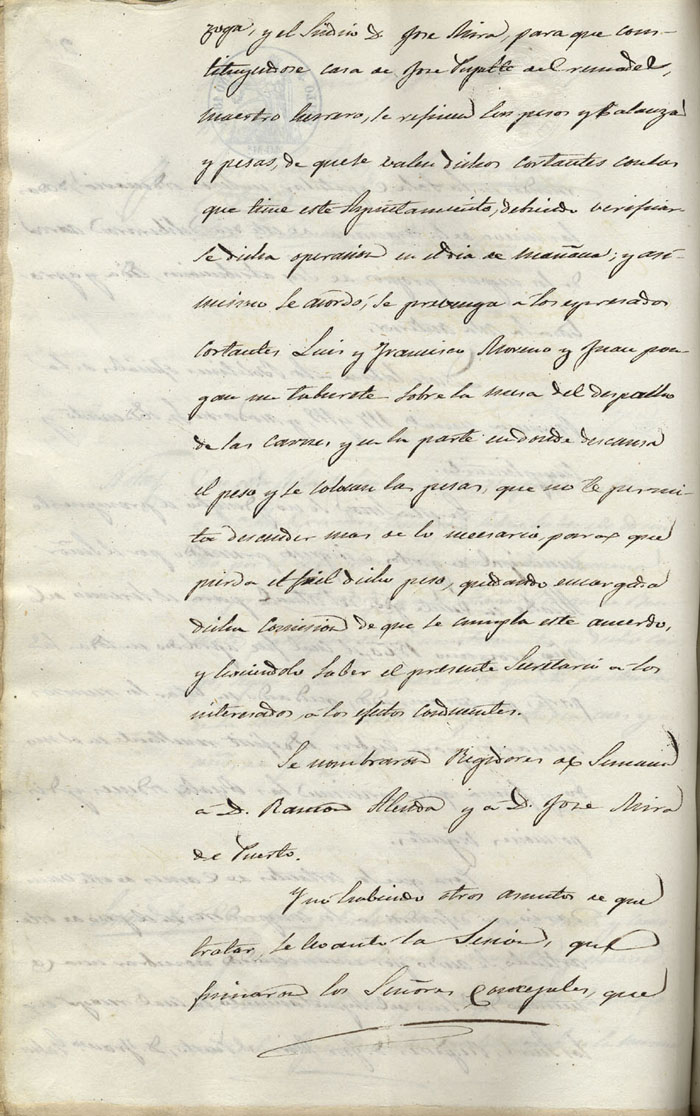 zoga, y el Síndico D. Jose Mira, para que cons-
tituyendose casa de Jose
maestro herrero, se refinen los pesos y Balanza
y pesas, de que se valen dichos cortantes con las
que tiene este Ayuntamiento, debiendo verificar-
se dicha operacion en el dia de mañana; y así-
mismo se acordó, se prevenga a los espresados
cortantes Luis y Francisco Moreno y Juan pon-
gan un taburete sobre la mesa del despacho
de las carnes y en la parte endonde descansa
el peso y se colocan las pesas, que no le permi-
ta descender mas de lo necesario para que
pierda el fiel dicho peso, quedando encargada
dicha Comision de que se cumpla este acuerdo,
y haciendolo saber el presente Secretario a los
interesados a los efectos conducentes.
Se nombraron Regidores de Semana
á D. Ramon Alenda y á D. Jose Mira
de Puerto.
Y no habiendo otros asuntos de que
tratar, se levantó la Sesion, que
firmaron los Señores Concejales, que